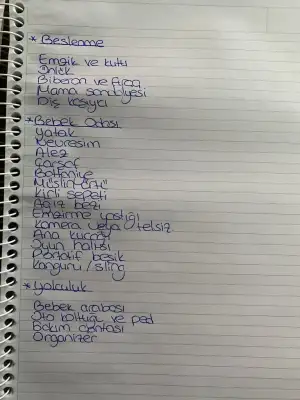 * Beslenme
Emzik ve kutu
Önlük
Biberon ve fırça
Mama sandalyesi
Diş kaşıyıcı
* Bebek Odası
Yatak
Nevresim
Alez
Çarşaf
Battaniye
Müslin örtü
Kirli sepeti
Ağız bezi
Emzirme yastığı
Kamera veya telsiz
Ana kucağı
Oyun halısı
Portatif beşik
Kanguru / sling
* Yolculuk
Bebek arabası
Oto koltuğu ve ped
Bakım çantası
Organizer